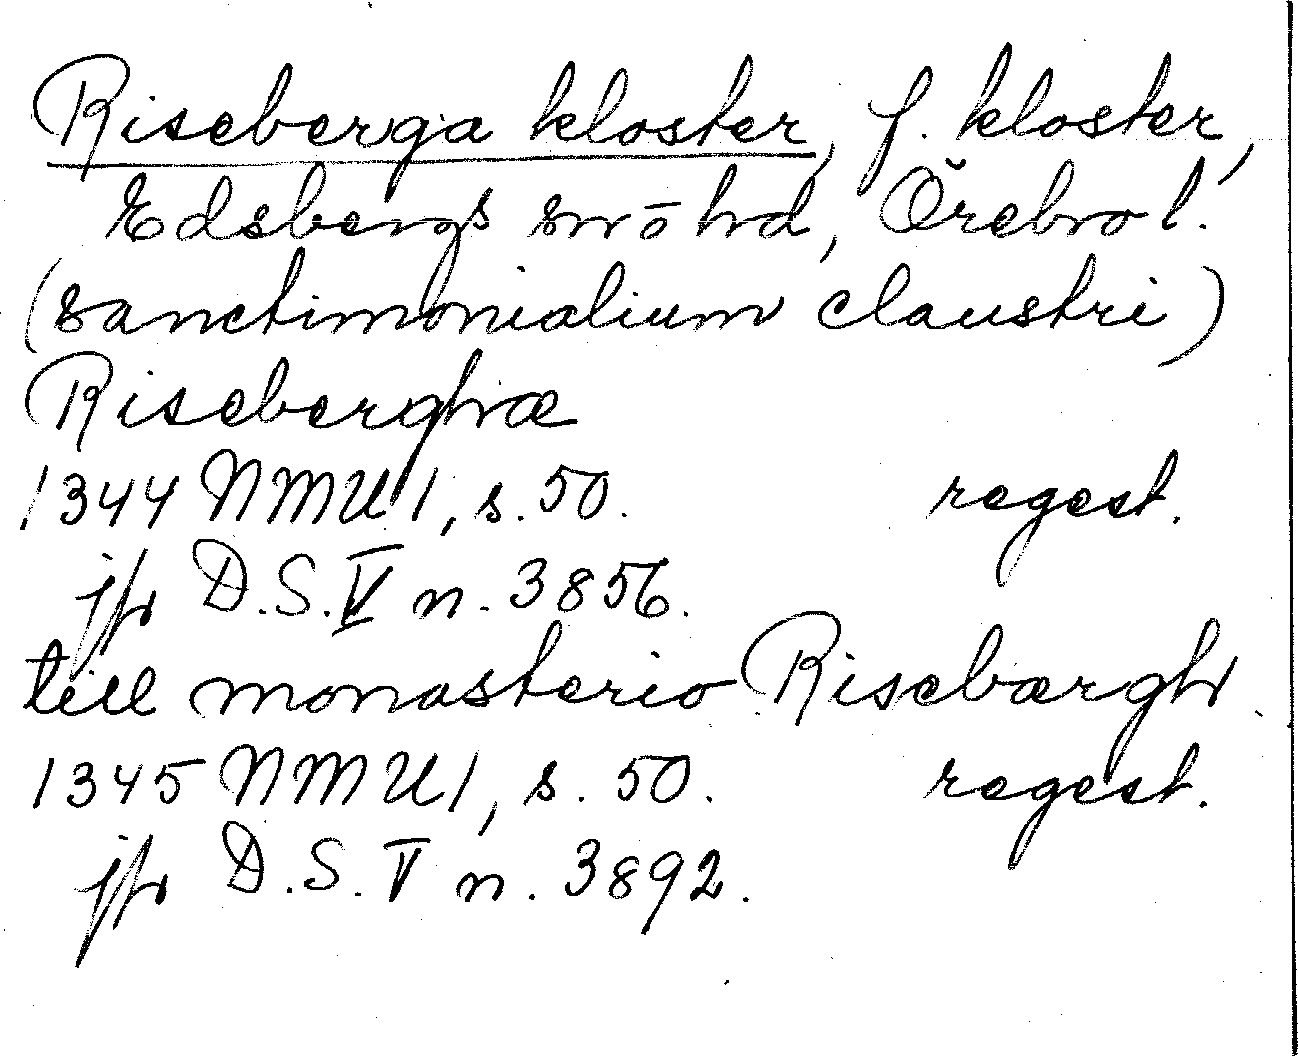 Riseberga kloster, f. kloster,
Edsbergs sn o hd, Örebro l.
(sanctimonialium claustri)
Riseberghæ
1344 NMU 1, s. 50. regest.
jfr D.S. V n. 3856.
till monasterio Risebærgh
1345 NMU 1, s. 50. regest.
jfr D.S. V n. 3892.